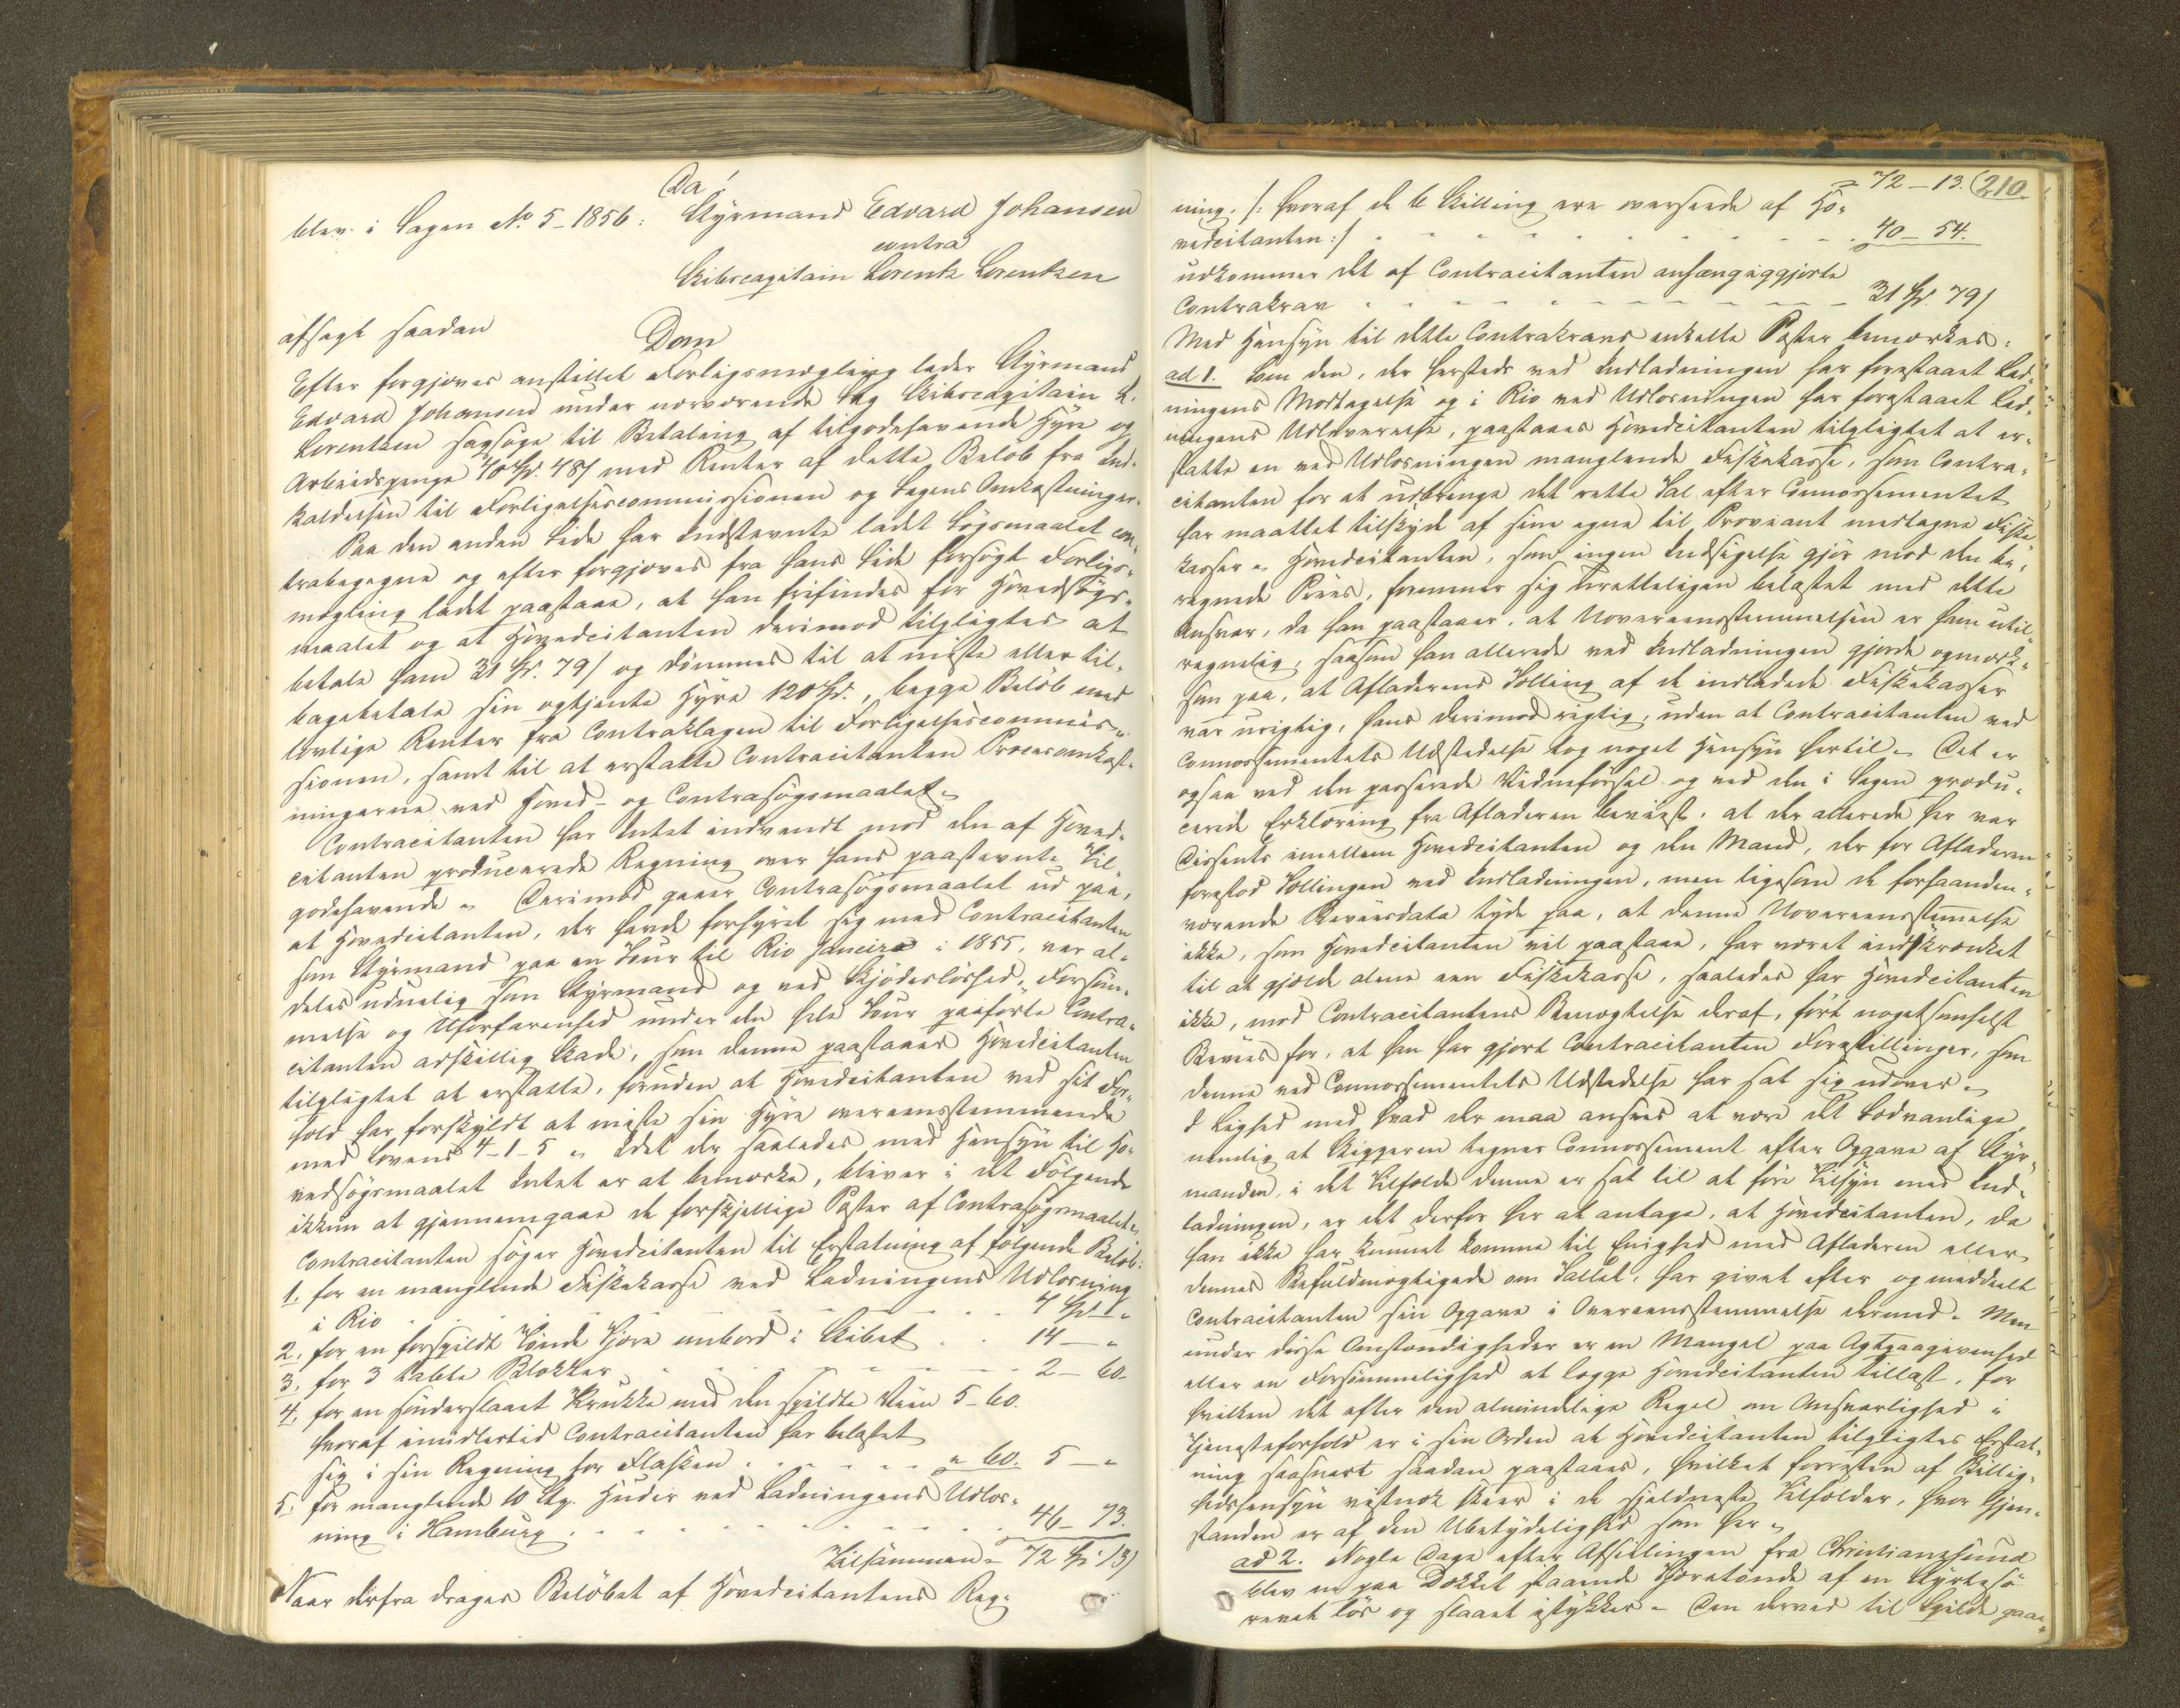 Da
blev i Sagen No 5 - 1856: Styrmand Edvard Johansen
contra
Skibscapitain Lorentz Lorentzen
afsagt saadan
Dom
Efter forgjæves anstillet Forligsmægling lader Styrmand
Edvard Johansen under nærværende Sag Skibscapitain L.
Lorentzen sagsøge til Betaling af tilgodehavende Hyre og
Arbeidspenge 40 Spd. 48 / med Renter af dette Beløb fra Ind-
kaldelsen til Forligelsescommissionen og Sagens Omkostninger.
Paa den anden Side har Indstevnte ladet Søgsmaalet con-
trabegegne og efter forgjæves fra hans Side forsøgt Forligs-
mægling ladet paastaae, at han frifindes for Hovedsøgs-
maalet og at Hovedcitanten derimod tilpligtes at
betale ham 31 Spd. 79 / og dømmes til at miste eller til-
bagebetale sin optjente Hyre 120 Spd., begge Beløb med
lovlige Renter fra Contraklagen til Forligelsescommis-
sionen, samt til at erstatte Contracitanten Procesomkost-
ningerne ved Hoved- og Contrasøgsmaalet.
Contracitanten har Intet indvendt mod den af Hoved-
citanten producerede Regning over hans paastevnte Til-
godehavende. Derimod gaaer Contrasøgsmaalet ud paa,
at Hovedcitanten, der havde forhyret sig med Contracitanten
som Styrmand paa en Tour til Rio Janeiro i 1855, var al-
deles uduelig som Styrmand og ved Skjødesløshed, Forsøm-
melse og Uforfarenhed under den hele Tour paaførte Contra-
citanten adskillig Skade, som denne paastaaer Hovedcitanten
tilpligtet at erstatte, foruden at Hovedcitanten ved sit For-
hold har forskyldt at miste sin Hyre overeensstemmende
med Lovens 4-1-5. Idet der saaledes med Hensyn til Ho-
vedsøgsmaalet Intet er at bemærke, bliver i det Følgende
ikkun at gjennemgaae de forskjellige Poster af Contrasøgsmaalet.
Contracitanten søger Hovedcitanten til Erstatning af følgende Beløb:
1. for en manglende Fiskekasse ved Ladningens Udlosning
i Rio . . . . . 4 Spd - "
2. for en forspildt Tønde Tjære ombord i Skibet . . 14 - "
3. for 3 tabte Blokker . . . . . 2 - 60.
4. for en sønderslaaet Krukke med den spildte Viin 5 - 60.
hvoraf imidlertid Contracitanten har belastet
sig i sin Regning for Flasken . . . . . " 60. 5 - "
5. for manglende 10 Stk. Huder ved Ladningens Udlos-
ning i Hamburg . . . . . 46 - 73.
Tilsammen = 72 Spd 13 /
Naar derfra drages Beløbet af Hovedcitantens Reg-
= 72 - 13. 210.
ning /: hvoraf de 6 Skilling ere overseede af Ho-
vedcitanten :/ . . . . . 40 - 54.
udkommer det af Contracitanten anhængiggjorte
Contrakrav . . . . . 31 Spd. 79 /
Med Hensyn til dette Contrakravs enkelte Poster bemærkes:
ad 1. Som den, der hersteds ved Indladningen har forestaaet Lad-
ningens Modtagelse og i Rio ved Udlosningen har forestaaet Lad-
ningens Udleverelse, paastaaes Hovedcitanten tilpligtet at er-
statte en ved Udlosningen manglende Fiskekasse, som Contra-
citanten for at udbringe det rette Tal efter Connossementet
har maattet tilskyde af sine egne til Proviant medtagne Fiske-
kasser. Hovedcitanten, som ingen Indsigelse gjør mod den be-
regnede Priis, formener sig urettelig belastet med dette
Ansvar, da han paastaaer, at Uovereensstemmelsen er ham util-
regnelig, saasom han allerede ved Indladningen gjorde opmærk-
som paa, at Afladerens Tælling af de indladede Fiskekasser
var urigtig, hans derimod rigtig, uden at Contracitanten ved
Connossementets Udstedelse tog noget Hensyn hertil. Det er
ogsaa ved den passerede Vidneførsel og ved den i Sagen produ-
cerede Erklæring fra Afladeren beviist, at der allerede her var
Dissents imellem Hovedcitanten og den Mand, der for Afladeren
forestod Tællingen ved Indladningen, men ligesom de forhaanden-
værende Beviisdata tyde paa, at denne Uovereensstemmelse
ikke, som Hovedcitanten vil paastaae, har været indskrænket
til at gjælde alene een Fiskekasse, saaledes har Hovedcitanten
ikke, mod Contracitantens Benægtelse deraf, ført nogetsomhelst
Beviis for, at han har gjort Contracitanten Forestillinger, som
denne ved Connossementets Udstedelse har sat sig udover.
I Lighed med hvad der maa ansees at være det Sædvanlige,
nemlig at Skipperen tegner Connossement efter Opgave af Styr-
manden, i det Tilfælde denne er sat til at føre Tilsyn med Ind-
ladningen, er det derfor her at antage, at Hovedcitanten, da
han ikke har kunnet komme til Enighed med Afladeren eller
dennes Befuldmægtigede om Tallet, har givet efter og meddeelt
Contracitanten sin Opgave i Overeensstemmelse dermed. Men
under disse Omstændigheder er en Mangel paa Agtpaagivenhed
eller en Forsømmelighed at lægge Hovedcitanten tillast, for
hvilken det efter den almindelige Regel om Ansvarlighed i
Tjenesteforhold er i sin Orden at Hovedcitanten tilpligtes Erstat-
ning saasnart saadan paastaaes, hvilket forresten af Billig-
hedshensyn vistnok skeer i de sjeldneste Tilfælder, hvor Gjen-
standen er af den Ubetydelighed som her.
ad 2. Nogle Dage efter Afseilingen fra Christianssund
blev en paa Dækket staaende Tjæretønde af en Styrtesø
revet løs og slaaet istykker. Den derved til Spilde gaa-